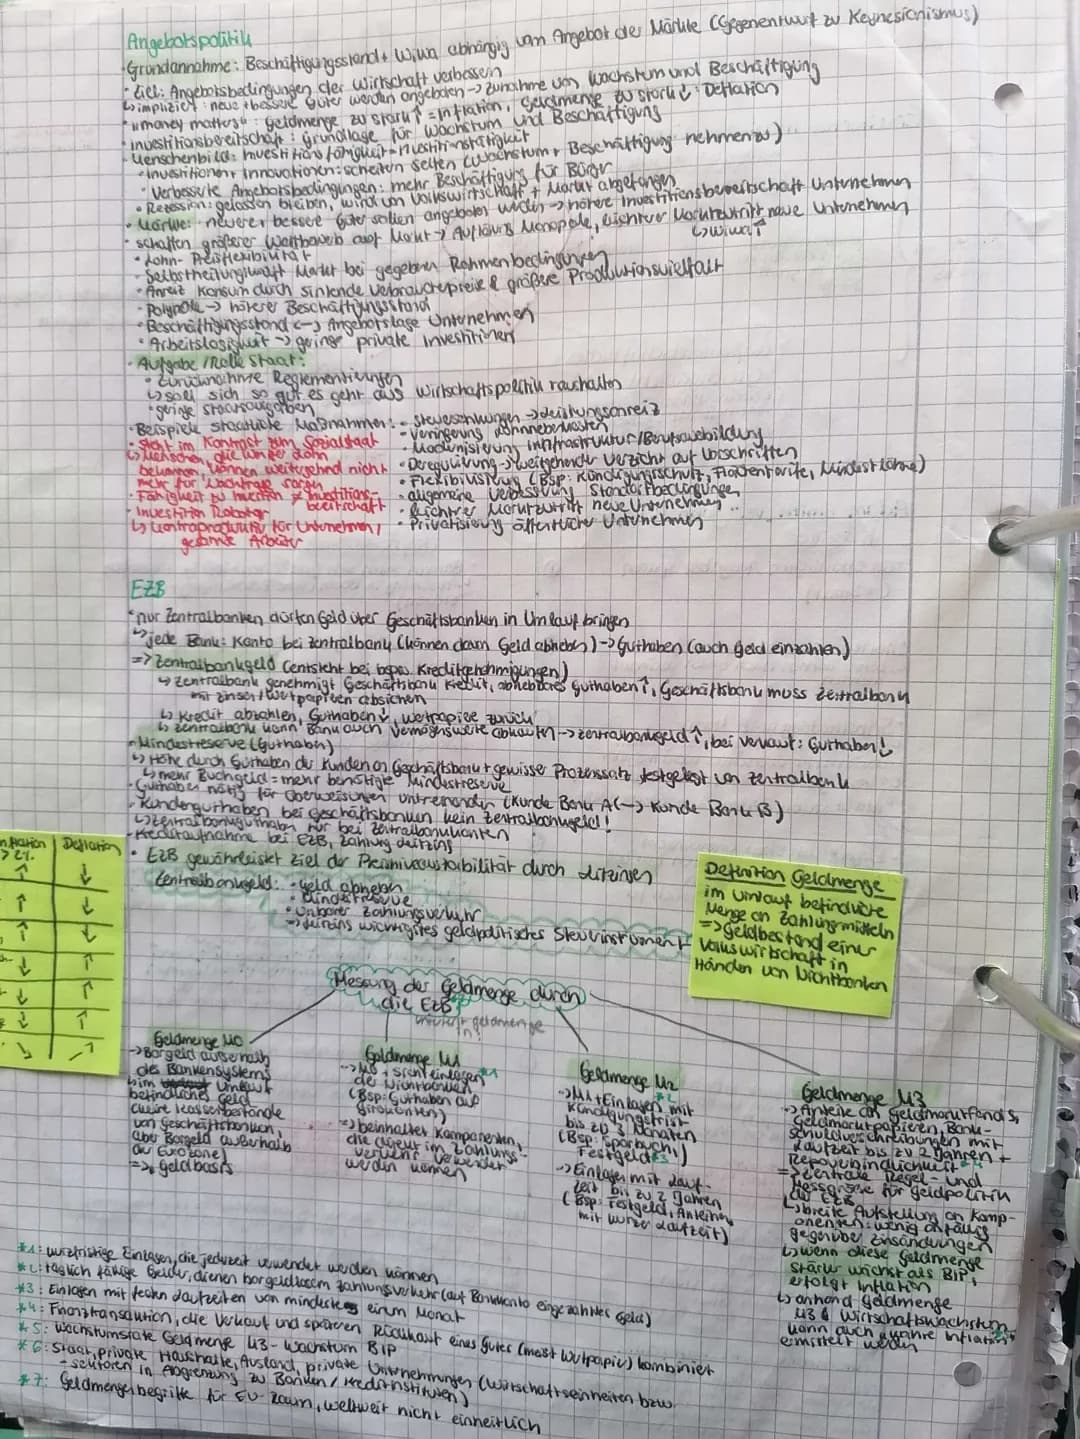 Angebotspolitik
· Grundannahme: Beschäftigungsstand + Wiwa abhängig vom Angebot der Märkte (Gegenentwurf zu Keynesianismus)
· Ziel: Angebotsbedingungen der Wirtschaft verbessern
↳ impliziert: neue + bessere Güter werden angeboten → Zunahme von Wachstum und Beschäftigung
· "money matters": Geldmenge zu stark ↑ = Inflation, Geldmenge zu stark ↓: Deflation
· Investitionsbereitschaft: Grundlage für Wachstum und Beschäftigung
· Menschenbild: Investitionsfähigkeit = Investitionstätigkeit
· Investitionen + Innovationen: scheitern selten (Wachstum + Beschäftigung nehmen zu)
· Verbesserte Angebotsbedingungen: mehr Beschäftigung für Bürger
· Rezession: gelassen bleiben, wird von Volkswirtschaft + Markt abgefangen
· Märkte: neuere, bessere Güter sollen angeboten werden → höhere Investitionsbereitschaft Unternehmen
· schaffen größerer Wettbewerb auf Markt → Auflösung Monopole, leichterer Marktzutritt neue Unternehmen
↳ Wiwa ↑
· Lohn- Preisflexibilität
· Selbstheilungskraft Markt bei gegebenen Rahmenbedingungen
· Anreiz Konsum durch sinkende Verbraucherpreise & größere Produktionsvielfalt
· Polypole → höherer Beschäftigungsstand
· Beschäftigungsstand <-> Angebotslage Unternehmen
· Arbeitslosigkeit → geringe private Investitionen
· Aufgabe / Rolle Staat:
· Zurücknahme Reglementierungen
↳ soll sich so gut es geht aus Wirtschaftspolitik raushalten
· geringe Staatsausgaben
· Beispiele staatliche Maßnahmen: - Steuersenkungen → Leistungsanreiz
- Verringerung Lohnnebenkosten
- Modernisierung Infrastruktur/Berufsausbildung
· Deregulierung → weitgehender Verzicht auf Vorschriften
· Flexibilisierung (Bsp: Kündigungsschutz, Flächentarife, Mindestlöhne)
· allgemeine Verbesserung Standortbedingungen
· leichtrer Marktzutritt neue Unternehmen
· Privatisierung öffentlicher Unternehmen
· steht im Kontrast zum Sozialstaat
↳ Menschen, die weniger Lohn
bekommen, können weitergehend nicht
mehr für Nachfrage sorgen
· Fähigkeit zu Investition ≠ Investitions-
bereitschaft
· Investition Roboter
↳ Kontraproduktiv für Unternehmen,
gesamte Arbeiter
EZB
· nur Zentralbanken dürfen Geld über Geschäftsbanken in Umlauf bringen
↳ jede Bank: Konto bei Zentralbank (können dann Geld abheben) → Guthaben (auch Geld einzahlen)
=> Zentralbankgeld (entsteht bei bspw. Kreditgenehmigungen)
↳ Zentralbank genehmigt Geschäftsbank Kredit, abhebbares Guthaben ↑, Geschäftsbank muss Zentralbank
mit Zinsen / Wertpapieren absichern
↳ Kredit abzahlen, Guthaben ↓, Wertpapiere zurück
↳ Zentralbank kann Bank auch Vermögenswerte abkaufen → Zentralbankgeld ↑, bei Verkauf: Guthaben ↓
· Mindestreserve (Guthaben)
↳ Höhe durch Guthaben der Kunden an Geschäftsbank + gewisser Prozentsatz festgelegt von Zentralbank
↳ mehr Buchgeld = mehr benötigte Mindestreserve
· Guthaben nötig für Überweisungen untereinander (Kunde Bank A <-> Kunde Bank B)
· Kundenguthaben bei Geschäftsbanken kein Zentralbankgeld!
↳ Zentralbankguthaben nur bei Zentralbankkonten
· Kreditaufnahme bei EZB, Zahlung Leitzins
· EZB gewährleistet Ziel der Preisniveaustabilität durch Leitzinsen
Zentralbankgeld: · Geld abheben
· Mindestreserve
· Unbarer Zahlungsverkehr
→ Leitzins wichtigstes geldpolitisches Steuerinstrument
Inflation | Deflation
> 2%
↑ ↓
↑ ↓
↑ ↓
↓ ↑
↓ ↑
↓ ↑
Definition Geldmenge
im Umlauf befindliche
Menge an Zahlungsmitteln
=> Geldbestand einer
Volkswirtschaft in
Händen von Nichtbanken
Messung der Geldmenge durch
die EZB
Geldmenge M0
→ Bargeld außerhalb
des Bankensystems
↳ im Umlauf
befindliches Geld
(keine Kassenbestände
von Geschäftsbanken,
aber Bargeld außerhalb
der Eurozone)
=> Geldbasis
Geldmenge M1
→ M0 + Sichteinlagen *1
der Nichtbanken
(Bsp: Guthaben auf
Girokonten)
=> beinhaltet Komponenten,
die direkt im Zahlungs-
verkehr verwendet
werden können
Geldmenge M2
→ M1 + Einlagen *2 mit
Kündigungsfrist
bis zu 3 Monaten
(Bsp: Sparbuch,
Festgeld *3)
→ Einlagen mit Lauf-
zeit bis zu 2 Jahren
(Bsp: Festgeld, Anleihen
mit kurzer Laufzeit)
Geldmenge M3
→ Anteile an Geldmarktfonds,
Geldmarktpapieren, Bank-
schuldverschreibungen mit
Laufzeit bis zu 2 Jahren +
Repoverbindlichkeit *4
=> zentrale Regel- und
Messgröße für Geldpolitik
der EZB
↳ breite Aufstellung an Komp-
onenten: wenig anfällig
gegenüber Zinsänderungen
↳ wenn diese Geldmenge
stärker wächst als BIP,
erfolgt Inflation
↳ anhand Geldmenge
M3 & Wirtschaftswachstum
kann auch wahre Inflation
ermittelt werden
*1: kurzfristige Einlagen, die jederzeit verwendet werden können
*2: täglich fällige Gelder, dienen bargeldlosem Zahlungsverkehr (auf Bankkonto eingezahltes Geld)
*3: Einlagen mit festen Laufzeiten von mindestens einem Monat
*4: Finanztransaktion, die Verkauf und späteren Rückkauf eines Gutes (meist Wertpapier) kombiniert
*5: Wachstumsrate Geldmenge M3 - Wachstum BIP
*6: Staat, private Haushalte, Ausland, private Unternehmungen (Wirtschaftseinheiten bzw.
- sektoren in Abgrenzung zu Banken / Kreditinstituten)
*7: Geldmengebegriffe für EU-Raum, weltweit nicht einheitlich